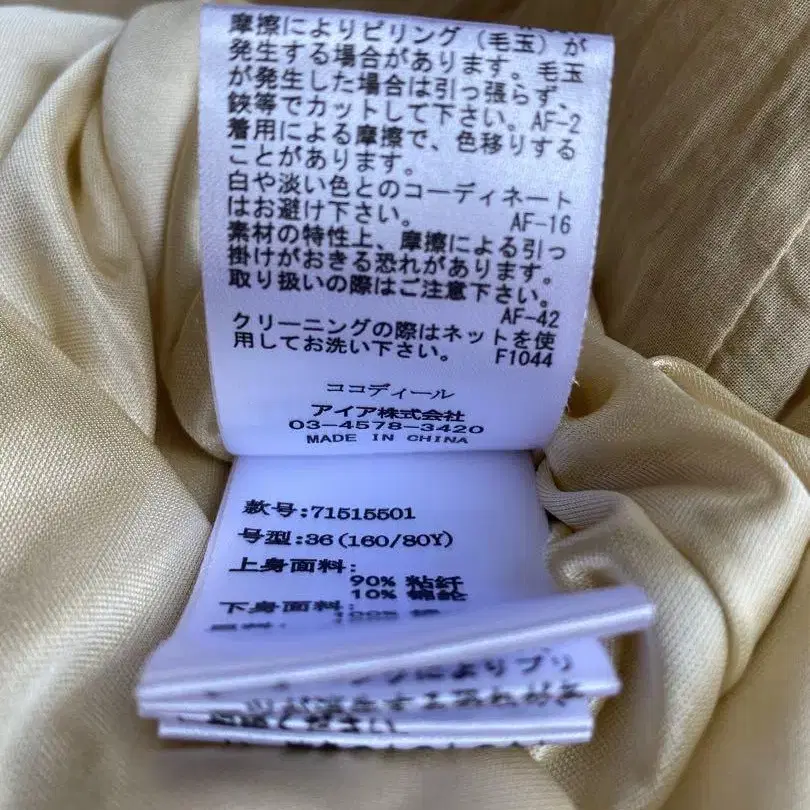 摩擦によりピリング（毛玉）が
発生する場合があります。毛玉
が発生した場合は引っ張らず、
鋏等でカットして下さい。AF-2
着用による摩擦で、色移りする
ことがあります。
白や淡い色とのコーディネート
はお避け下さい。 AF-16
素材の特性上、摩擦による引っ
掛けがおきる恐れがあります。
取り扱いの際はご注意下さい。
AF-42
クリーニングの際はネットを使
用してお洗い下さい。 F1044
ココディール
アイア株式会社
03-4578-3420
MADE IN CHINA
款号:71515501
号型:36(160/80Y)
上身面料:
90% 粘纤
10% 锦纶
下身面料:
100%
によりプリ
ください